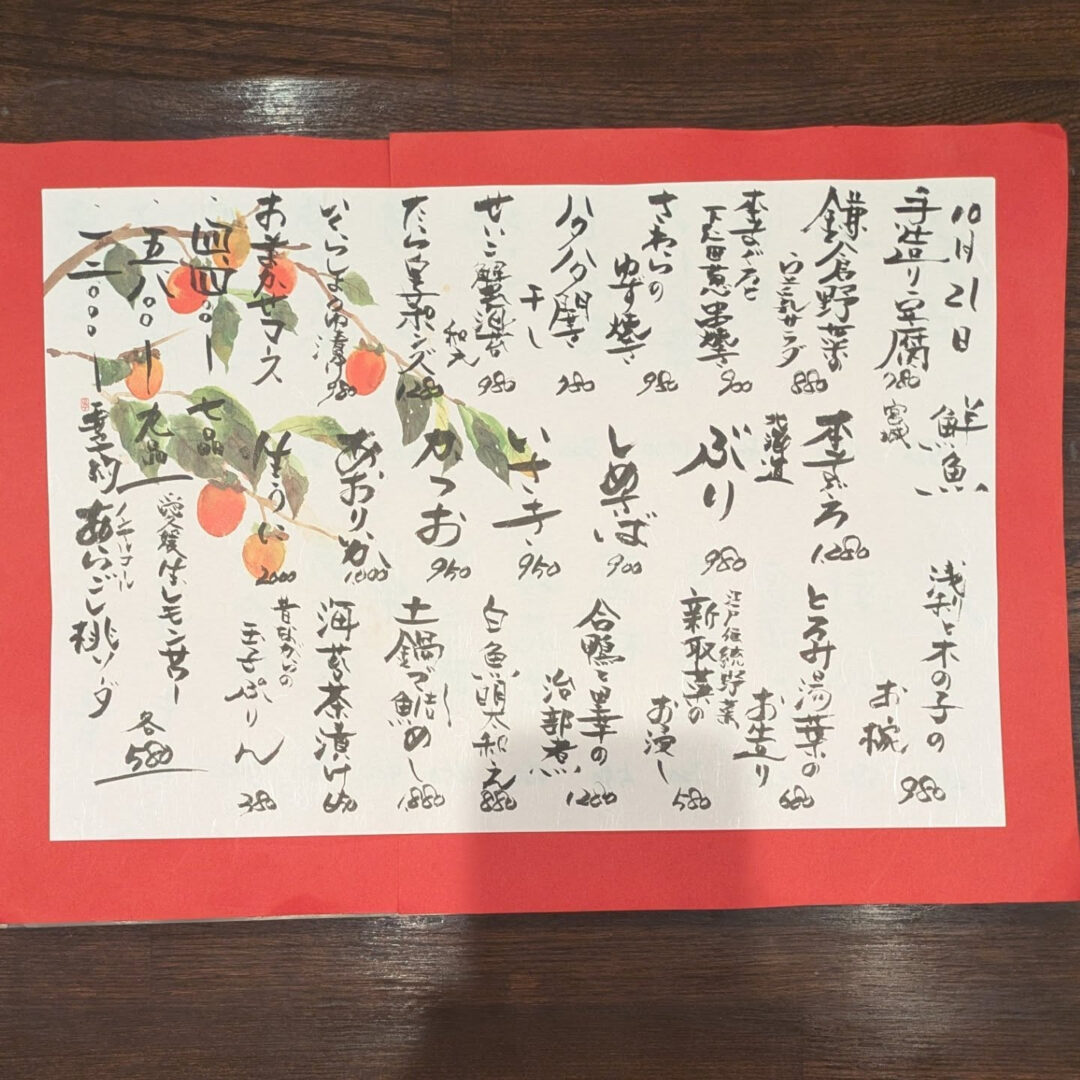 10月21日
手造り豆腐
780
鎌倉野菜の
サラダ
880
下仁田葱串焼き
900
さわらの
ゆず焼き
980
開き
干し
780
せいこ蟹
和え
980
たら白子ポンズ
1,280
いくらしょうゆ漬け
980
おまかせコース
四、四〇〇ー
七品
五、八〇〇ー
九品
一二、〇〇〇ー
予約
鮮魚
宮城
本まぐろ
1,280
北海道
ぶり
980
しめさば
900
いさき
950
かつお
950
あおりいか
1,000
生うに
2000
愛媛生レモンサワー
ノンアルコール
あらごし桃ソーダ
各580
浅利と木の子の
お椀
980
とろみ湯葉の
お造り
680
江戸伝統野菜
新取菜の
お浸し
580
合鴨と里芋の
治部煮
1,280
白魚明太和え
880
土鍋で鮭めし
1,880
海苔茶漬け
650
昔ながらの
玉子ぷりん
380